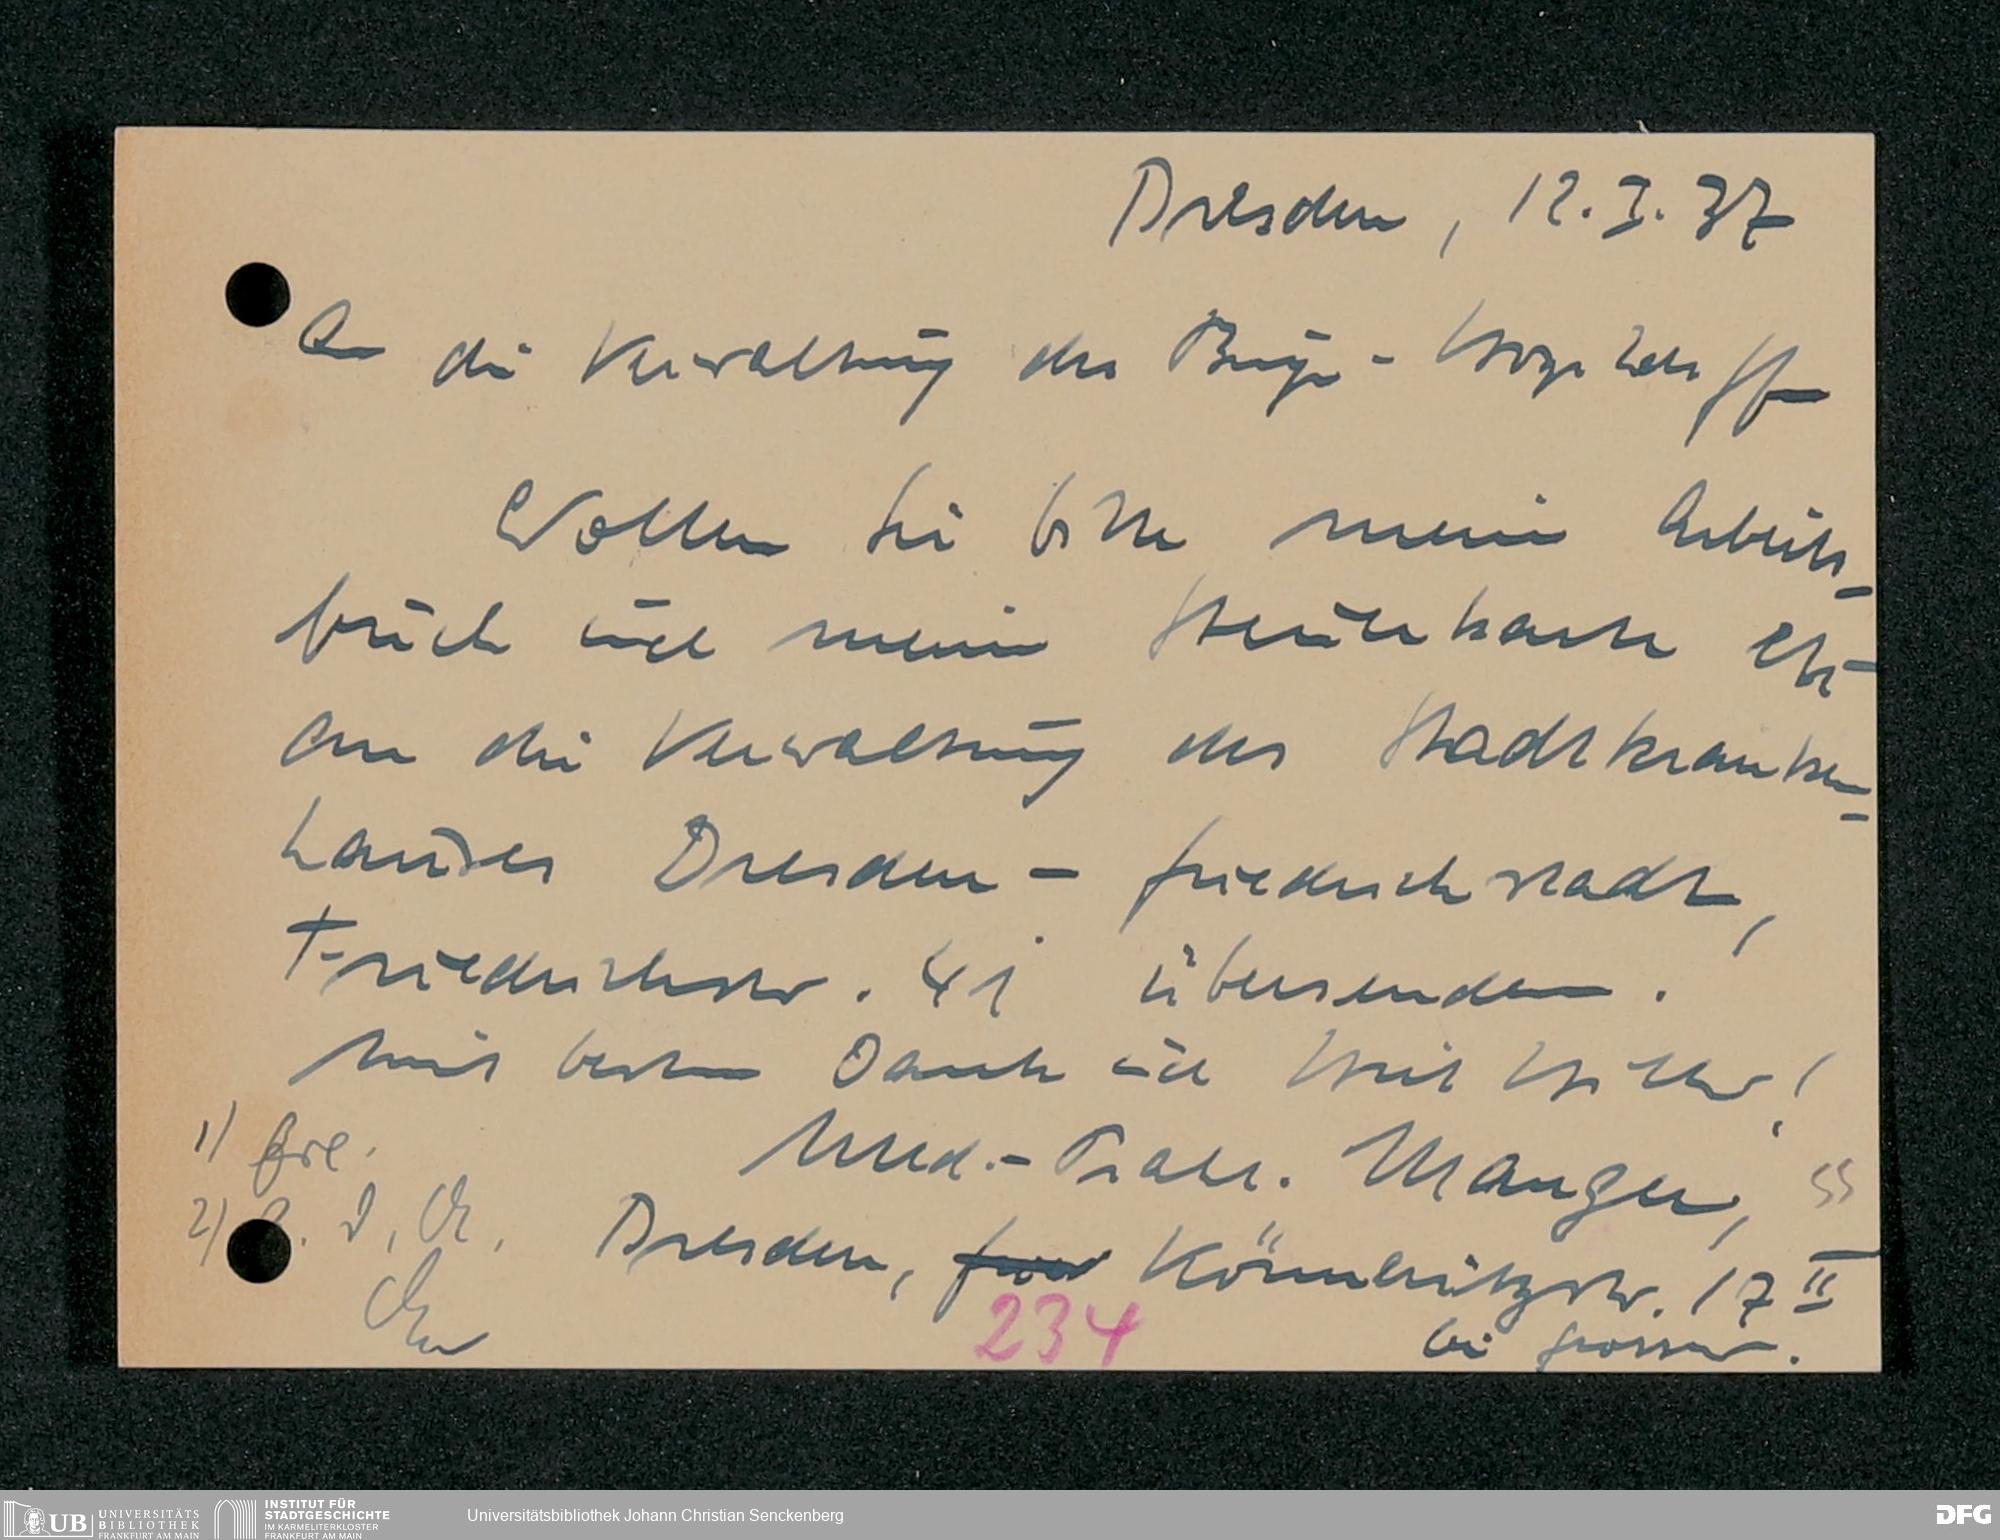 Dresden, 12.I.37
An die Verwaltung des Bürger-Hospitals Ffm
Wollen Sie bitte mein Arbeits-
buch und meine Steuerkarte etc
an die Verwaltung des Stadtkranken-
hauses Dresden-Friedrichstadt,
Friedrichstr. 41 übersenden.
Mit bestem Dank und Heil Hitler!
Med.-Prakt. Manger,
1) Erl.
2)
Dresden, Könneritzstr. 17 II
bei Grosser.
234
UB UNIVERSITÄTS
BIBLIOTHEK
FRANKFURT AM MAIN
INSTITUT FÜR
STADTGESCHICHTE
IM KARMELITERKLOSTER
FRANKFURT AM MAIN
Universitätsbibliothek Johann Christian Senckenberg
DFG